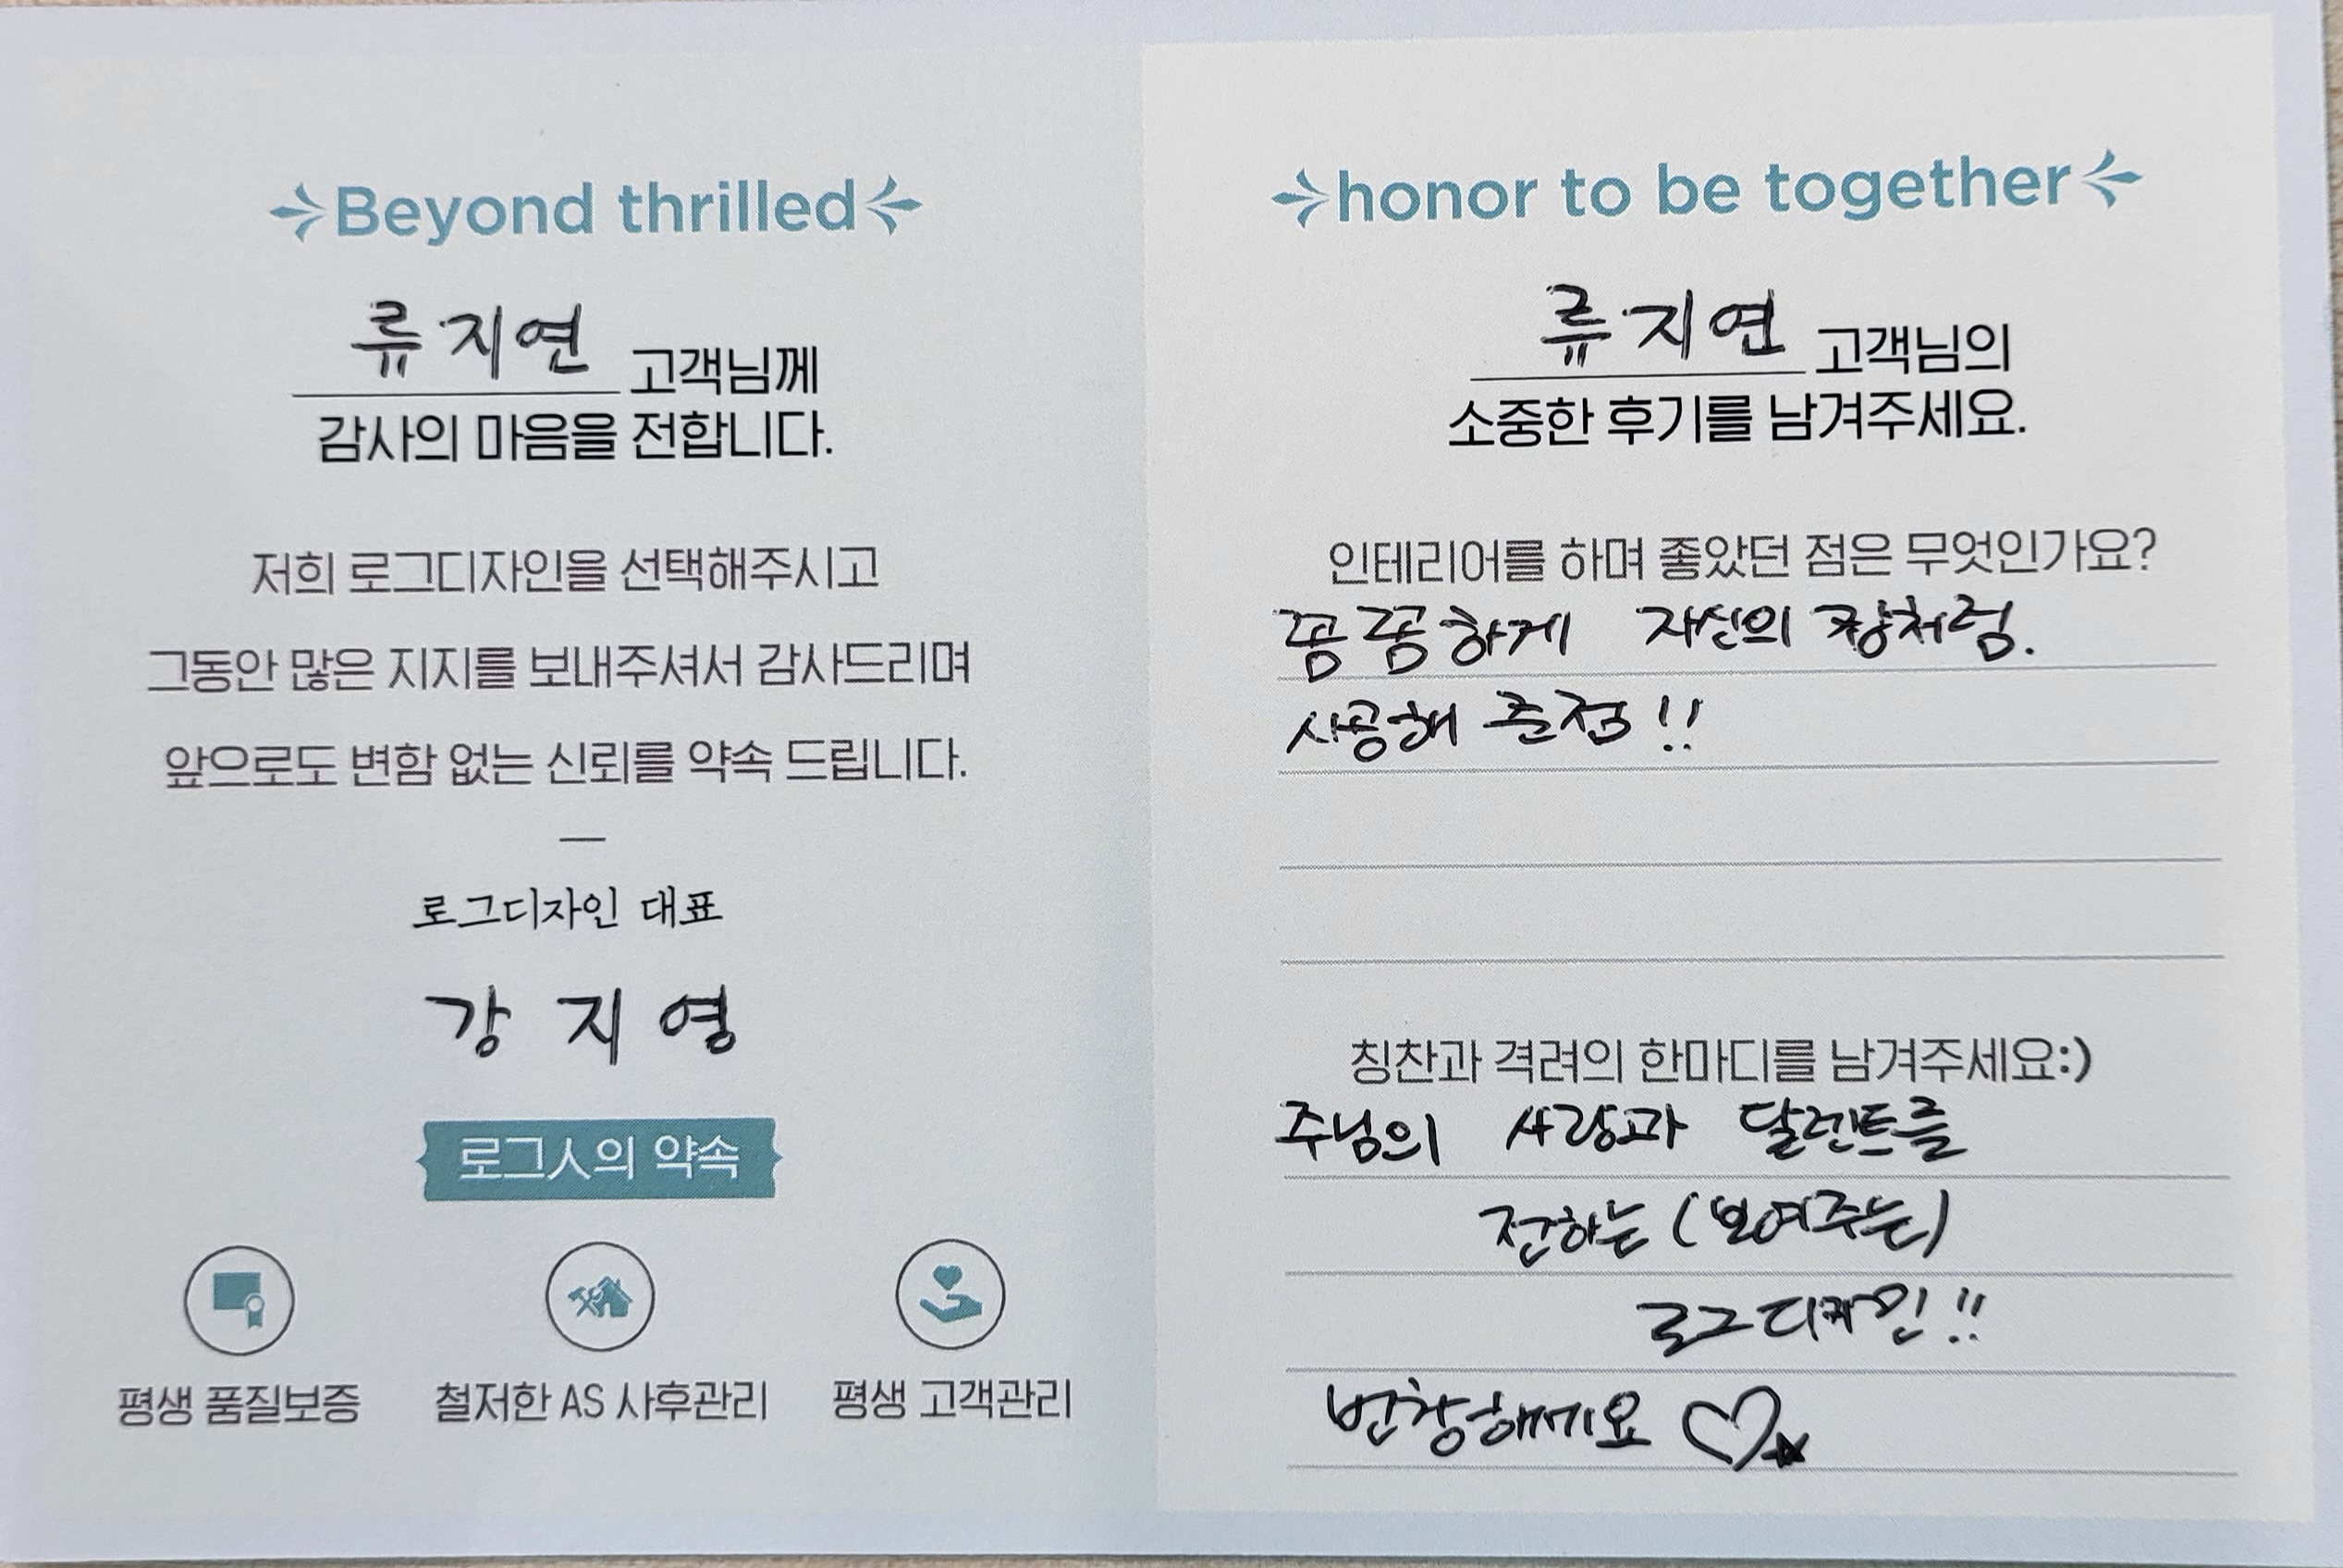 Beyond thrilled
류지연 고객님께
감사의 마음을 전합니다.
저희 로그디자인을 선택해주시고
그동안 많은 지지를 보내주셔서 감사드리며
앞으로도 변함 없는 신뢰를 약속 드립니다.
로그디자인 대표
강 지 영
로그人의 약속
평생 품질보증
철저한 AS 사후관리
평생 고객관리
honor to be together
류지연 고객님의
소중한 후기를 남겨주세요.
인테리어를 하며 좋았던 점은 무엇인가요?
꼼꼼하게 자신의 장처럼.
시공해 준점!!
칭찬과 격려의 한마디를 남겨주세요:)
주님의 사랑과 달렌트를
전하는 (보여주는)
로그디자인!!
번창하세요